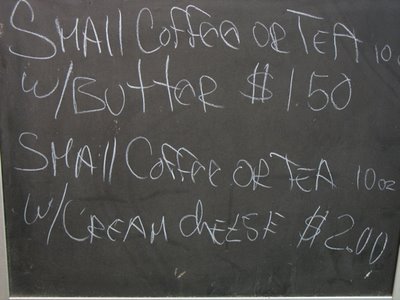 SMAll Coffee OR TEA 10 oz
W/BUtteR $1.50
SMAll Coffee OR TEA 10 oz
W/CREAM CHEESE $2.00